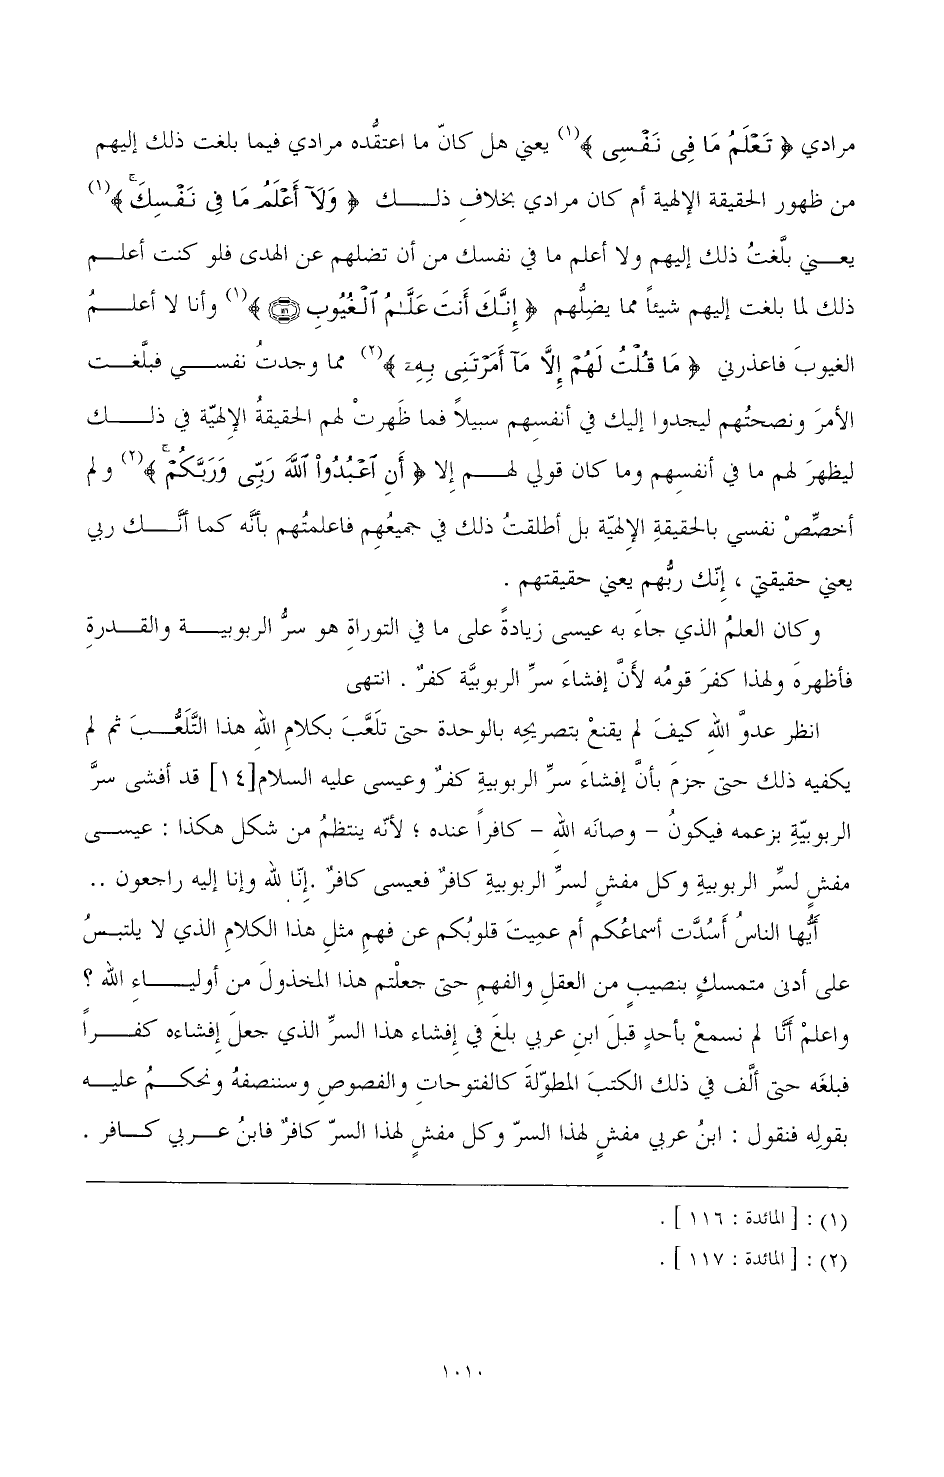 مرادي ﴿ تَعْلَمُ مَا فِى نَفْسِى ﴾(١) يعني هل كانّ ما اعتقُده مرادي فيما بلغت ذلك إليهم
من ظهور الحقيقة الإلهية أم كان مرادي بخلافِ ذلـــك ﴿ وَلَآ أَعْلَمُ مَا فِى نَفْسِكَۚ ﴾(١)
يعـــني بلَّغتُ ذلك إليهم ولا أعلم ما في نفسك من أن تضلهم عن الهدى فلو كنت أعلـــم
ذلك لما بلغت إليهم شيئاً مما يضِلُّهم ﴿ إِنَّكَ أَنتَ عَلَّـٰمُ ٱلْغُيُوبِ ۝١١٦ ﴾(١) وأنا لا أعلـــمُ
الغيوبَ فاعذرني ﴿ مَا قُلْتُ لَهُمْ إِلَّا مَآ أَمَرْتَنِى بِهِۦٓ ﴾(٢) مما وجدتُ نفســـي فبلَّغـــت
الأمرَ ونصحتُهم ليجدوا إليك في أنفسهم سبيلاً فما ظَهرتْ لهم الحقيقةُ الإلهيّة في ذلـــك
ليظهرَ لهم ما في أنفسهم وما كان قولي لهـــم إلا ﴿ أَنِ ٱعْبُدُوا۟ ٱللَّهَ رَبِّى وَرَبَّكُمْۚ ﴾(٢) ولم
أخصِّصْ نفسي بالحقيقةِ الإلهيّة بل أطلقتُ ذلك في جميعُهم فاعلمتُهم بأنَّه كما أنَّـــك ربي
يعني حقيقتي ، إنّك ربُّهم يعني حقيقتهم .
وكان العلمُ الذي جاءَ به عيسى زيادةً على ما في التوراةِ هو سرُّ الربوبيـــة والقـــدرةِ
فأظهرهَ ولهذا كفرَ قومُه لأنَّ إفشاءَ سرِّ الربوبيَّة كفرٌ . انتهى
انظر عدوَّ اللهِ كيفَ لم يقنعْ بتصريحِه بالوحدة حتى تلَعَّبَ بكلامِ اللهِ هذا التَّلَعُّـــبَ ثم لم
يكفيه ذلك حتى جزمَ بأنَّ إفشاءَ سرِّ الربوبيةِ كفرٌ وعيسى عليه السلام[١٤] قد أفشى سرَّ
الربوبيّةِ بزعمه فيكونُ – وصانَه الله – كافراً عنده ؛ لأنّه ينتظمُ من شكل هكذا : عيســـى
مفشٍ لسِّر الربوبيةِ وكل مفشٍ لسرِّ الربوبيةِ كافرٌ فعيسى كافرٌ .إنّا لله وإنا إليه راجعون ..
أيُّها الناسُ أَسُدَّت أسماعُكم أم عميتَ قلوبُكم عن فهمِ مثلِ هذا الكلامِ الذي لا يلتبـــسُ
على أدنى متمسكٍ بنصيبٍ من العقلِ والفهمِ حتى جعلْتم هذا المخذولَ من أوليـــاءِ الله ؟
واعلمْ أنَّا لم نسمعْ بأحدٍ قبلَ ابنِ عربي بلغَ في إفشاء هذا السرِّ الذي جعلَ إفشاءه كفـــراً
فبلغَه حتى ألَّف في ذلك الكتبَ المطوّلةَ كالفتوحاتِ والفصوصِ وسننصفهُ ونحكـــمُ عليـــه
بقولِه فنقول : ابنُ عربي مفشٍ لهذا السرّ وكل مفشٍ لهذا السرّ كافرٌ فابنُ عـــربي كـــافر .
(١) : [ المائدة : ١١٦ ] .
(٢) : [ المائدة : ١١٧ ] .
١٠١٠